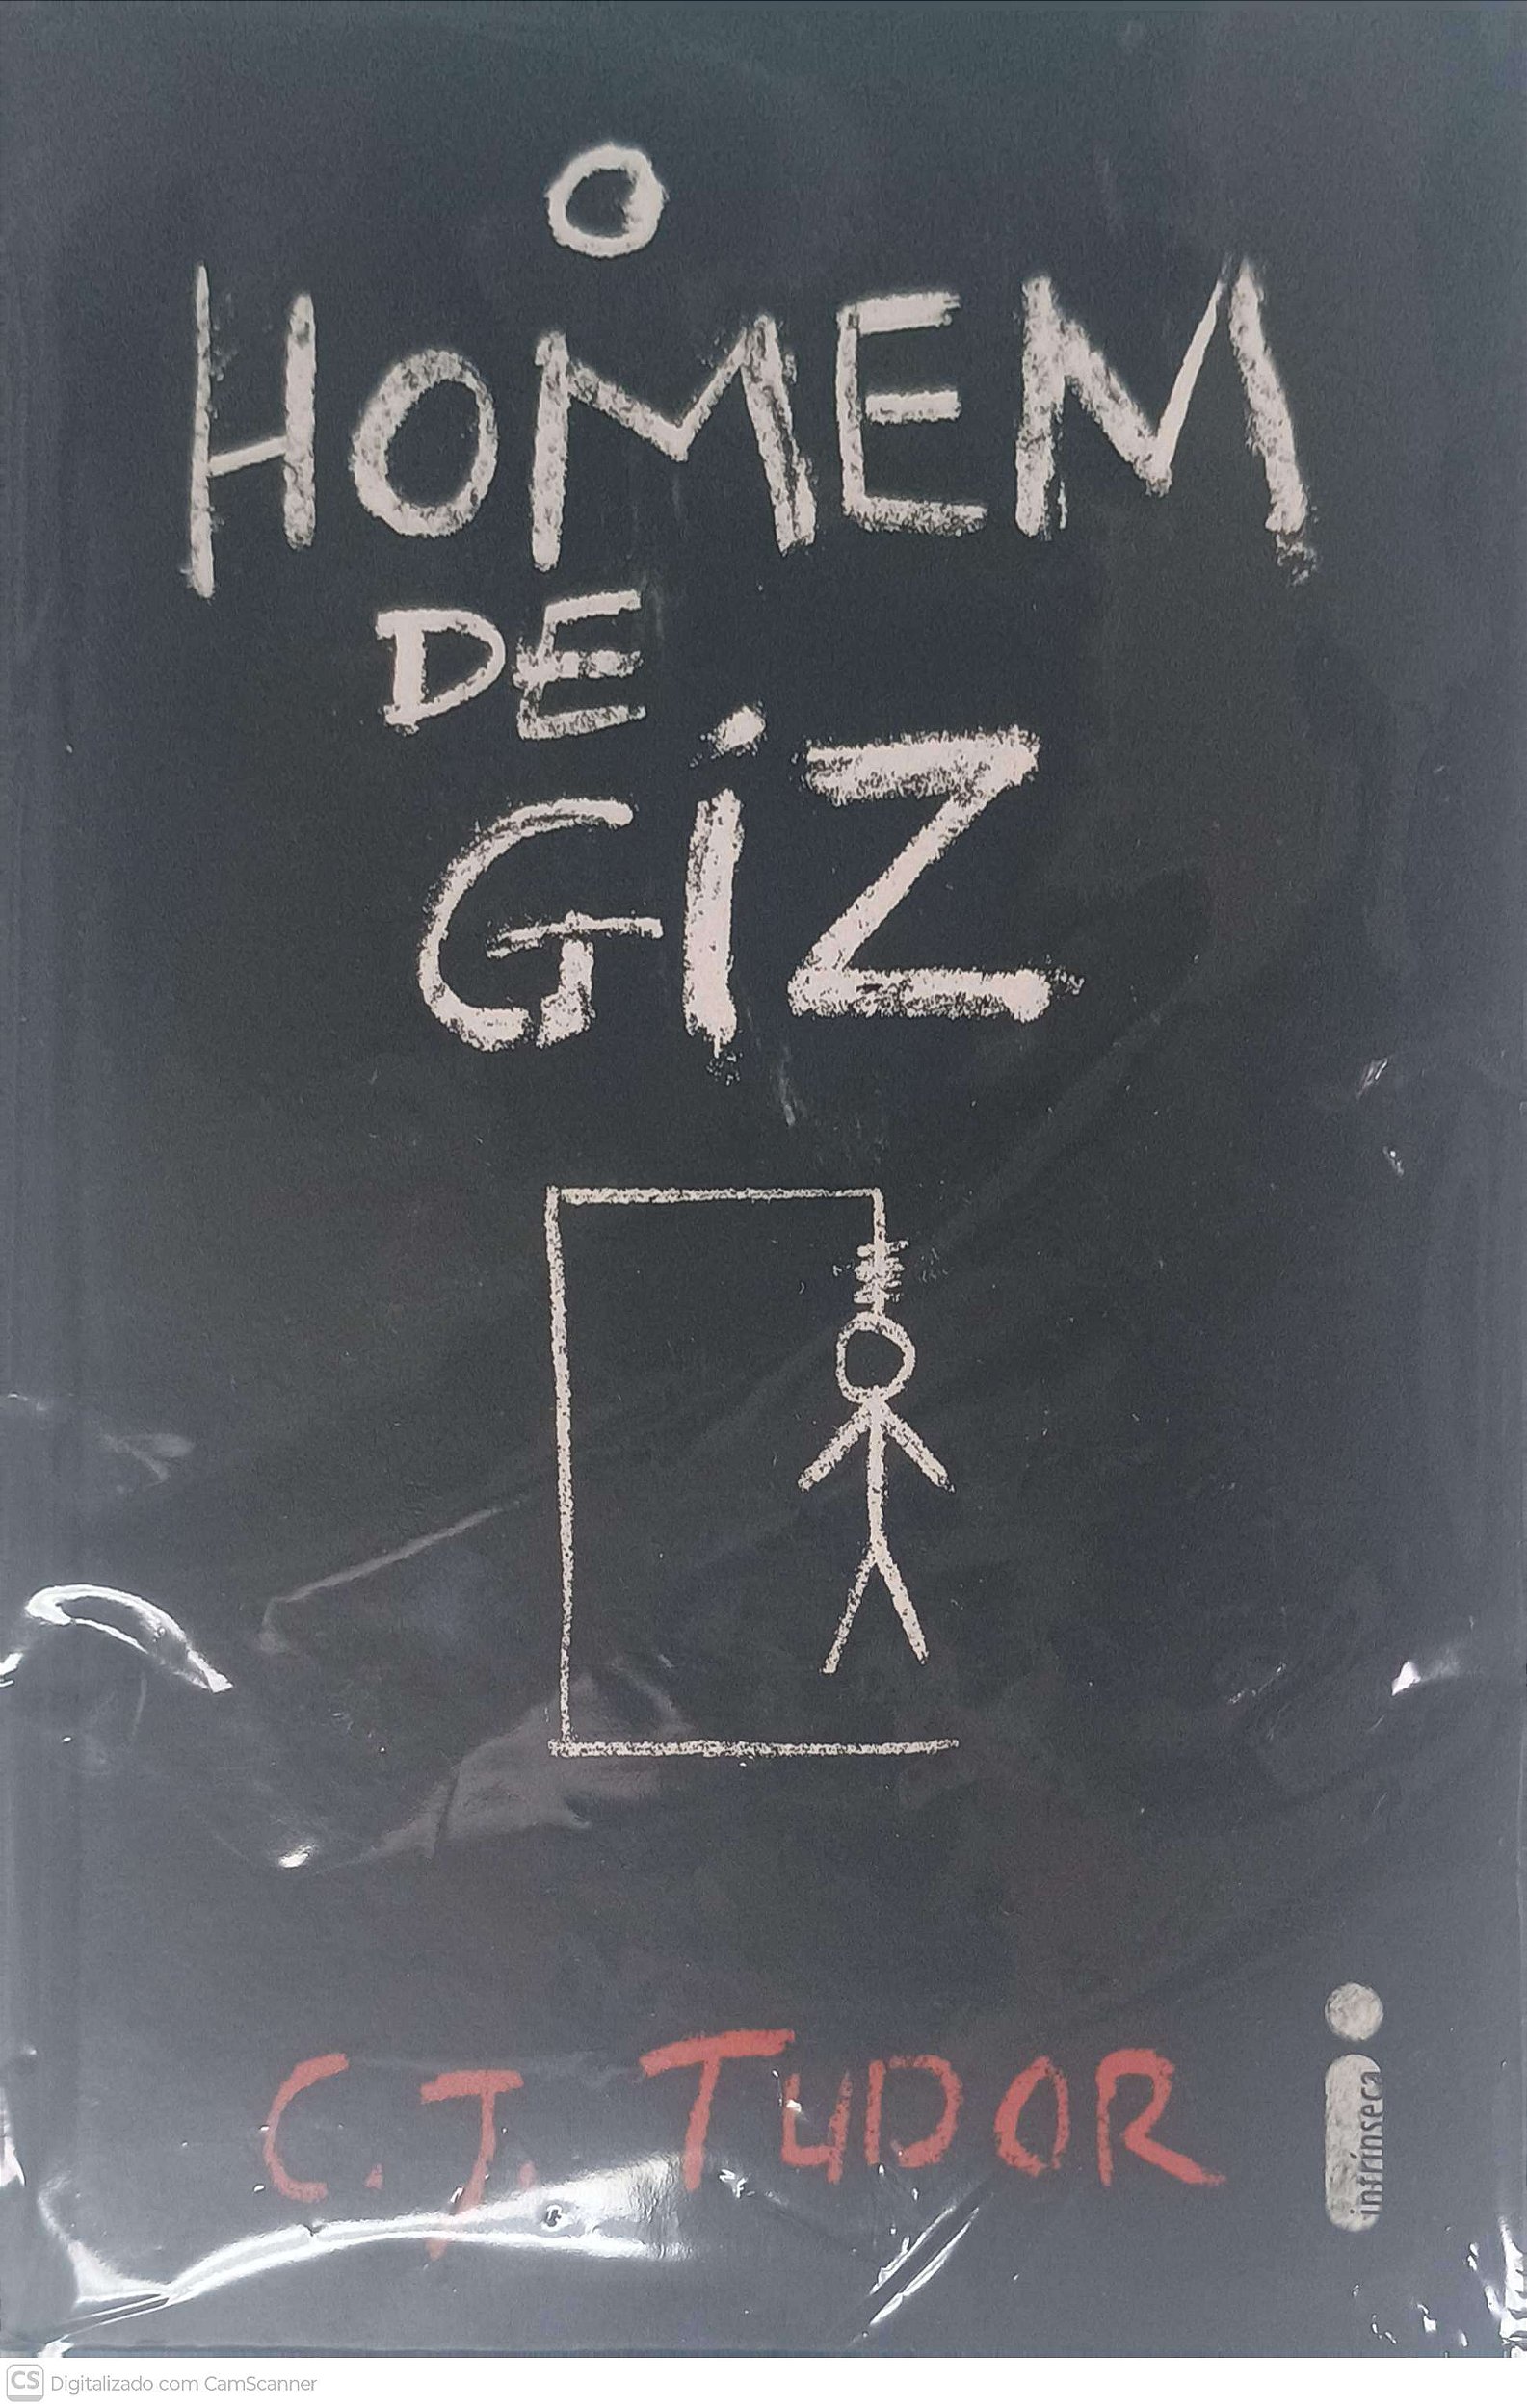 O
HOMEM
DE
GiZ
C. J. TUDOR
intrínseca
CS Digitalizado com CamScanner